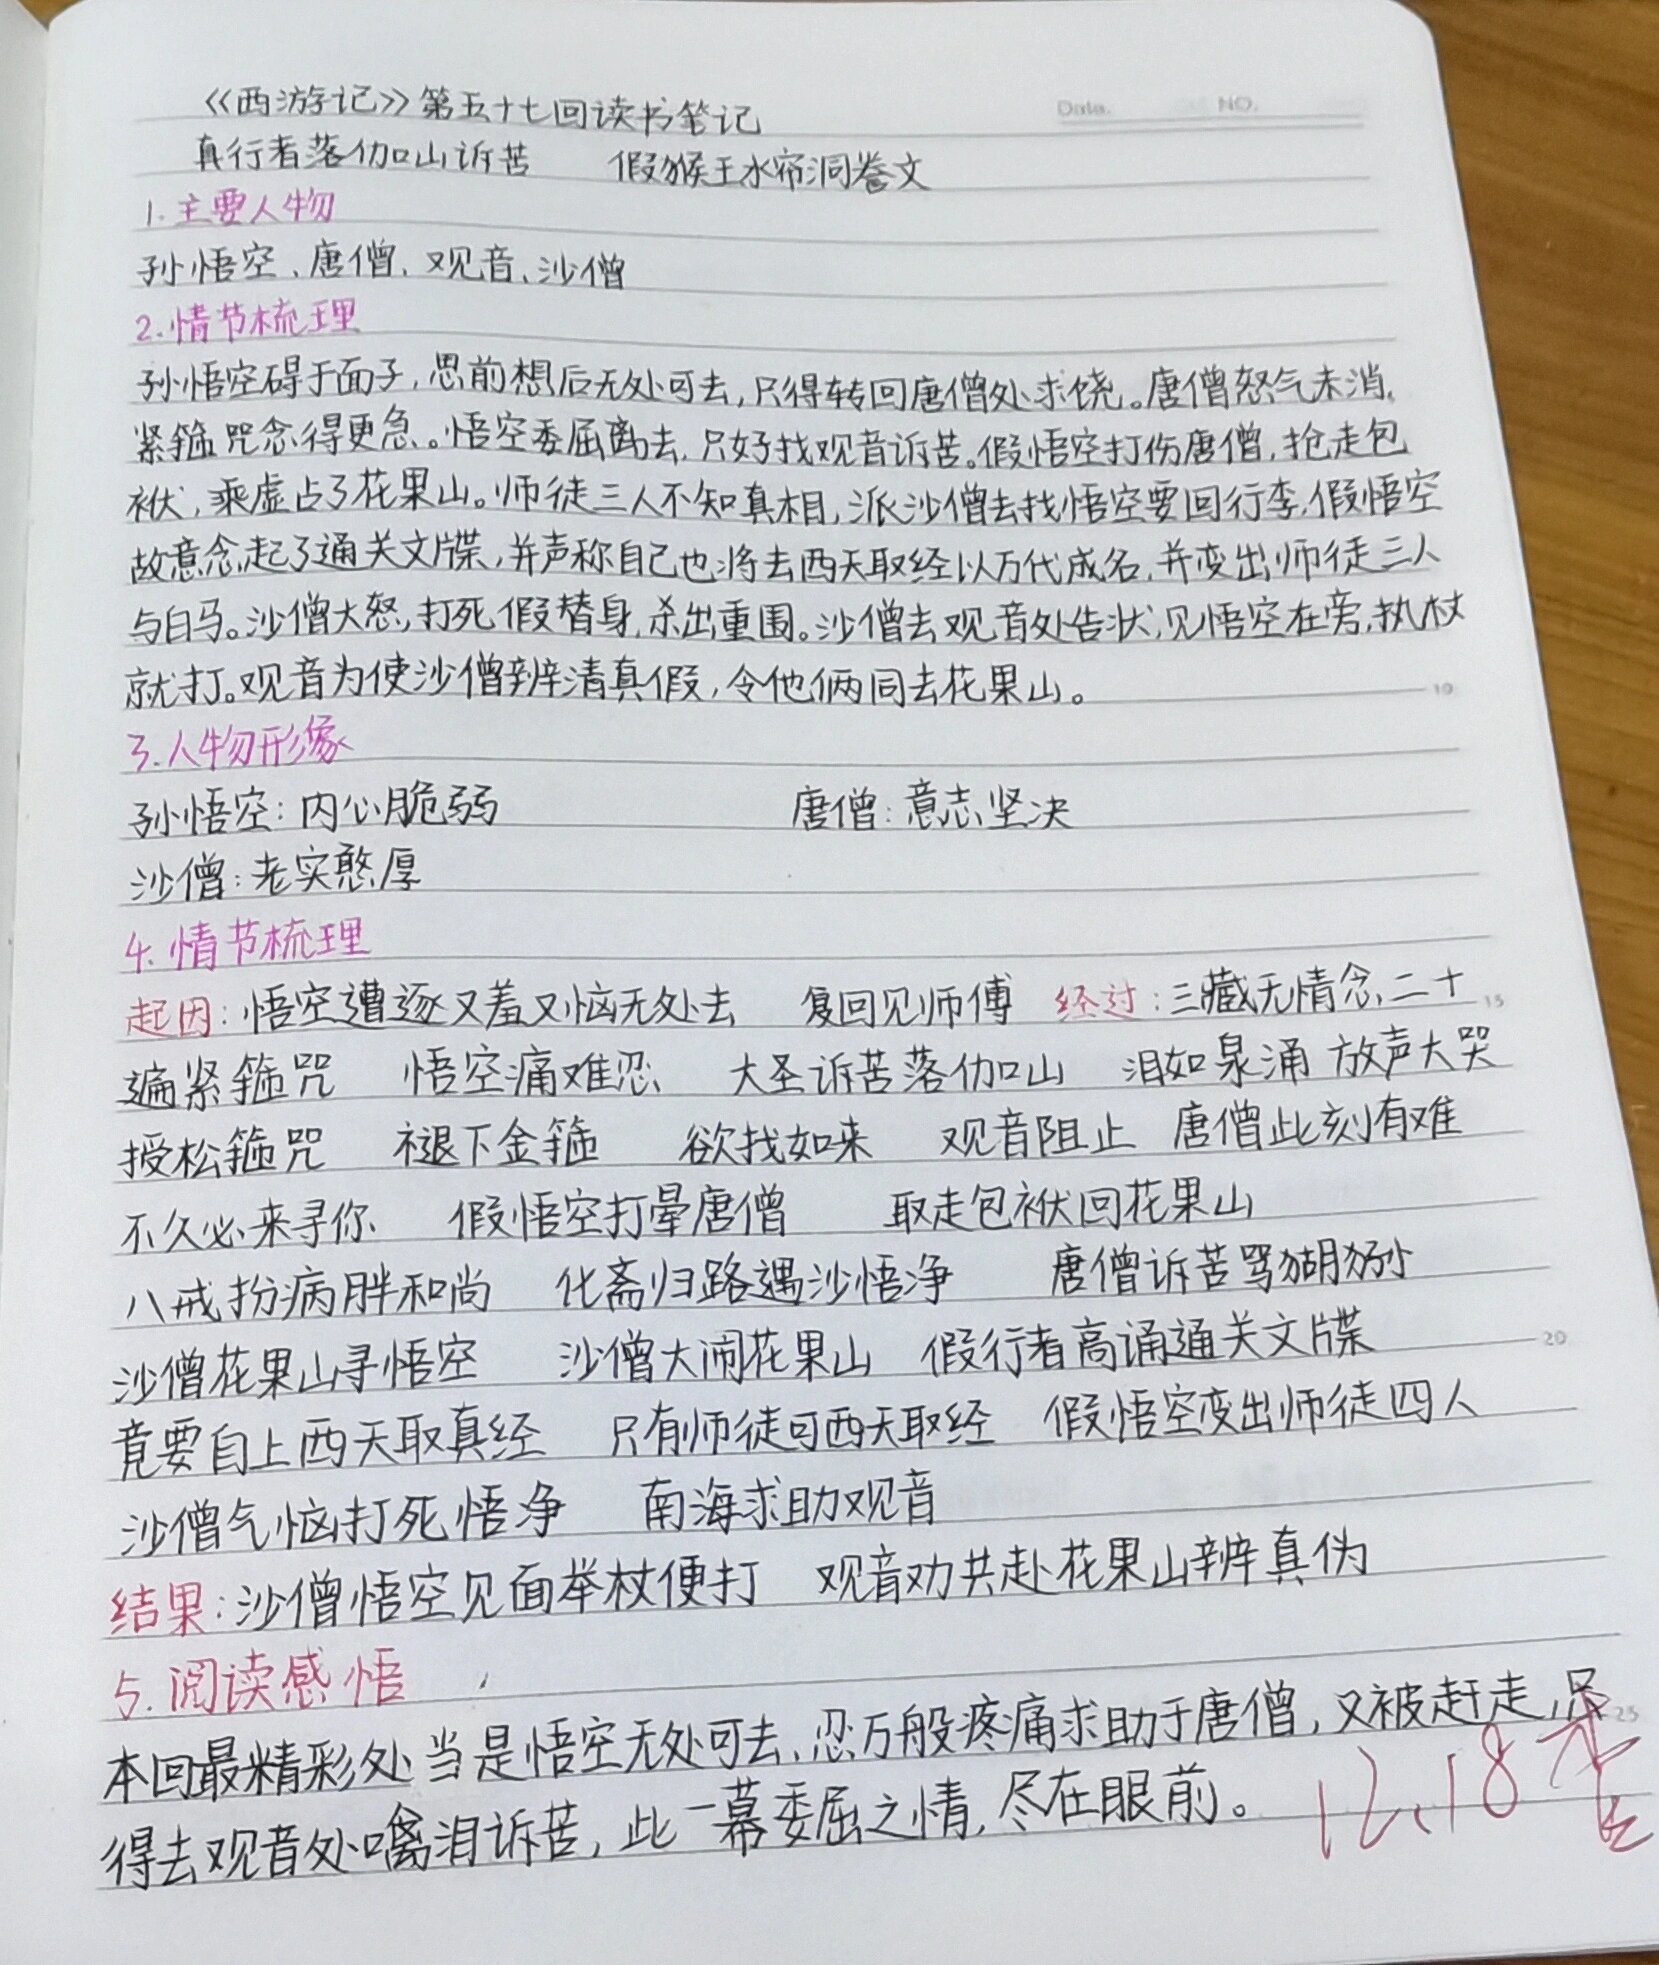 《西游记》第五十七回读书笔记
Date. NO.
真行者落伽山诉苦 假猴王水帘洞誊文
1.主要人物
孙悟空、唐僧、观音、沙僧
2.情节梳理
孙悟空碍于面子,思前想后无处可去,只得转回唐僧处求饶。唐僧怒气未消,
紧箍咒念得更急。悟空委屈离去,只好找观音诉苦。假悟空打伤唐僧,抢走包
袱,乘虚占了花果山。师徒三人不知真相,派沙僧去找悟空要回行李,假悟空
故意念起了通关文牒,并声称自己也将去西天取经以万代成名,并变出师徒三人
与白马。沙僧大怒,打死假替身,杀出重围。沙僧去观音处告状,见悟空在旁,执杖
就打。观音为使沙僧辨清真假,令他俩同去花果山。
10
3.人物形像
孙悟空:内心脆弱 唐僧:意志坚决
沙僧:老实憨厚
4.情节梳理
起因:悟空遭逐又羞又恼无处去 复回见师傅 经过:三藏无情念二十
15
遍紧箍咒 悟空痛难忍 大圣诉苦落伽山 泪如泉涌 放声大哭
授松箍咒 褪下金箍 欲找如来 观音阻止 唐僧此刻有难
不久必来寻你 假悟空打晕唐僧 取走包袱回花果山
八戒扮病胖和尚 化斋归路遇沙悟净 唐僧诉苦骂猢狲
沙僧花果山寻悟空 沙僧大闹花果山 假行者高诵通关文牒
20
竟要自上西天取真经 只有师徒可西天取经 假悟空变出师徒四人
沙僧气恼打死悟净 南海求助观音
结果:沙僧悟空见面举杖便打 观音劝共赴花果山辨真伪
5.阅读感悟
本回最精彩处当是悟空无处可去,忍万般疼痛求助于唐僧,又被赶走,只
25
得去观音处噙泪诉苦,此一幕委屈之情,尽在眼前。
12.18